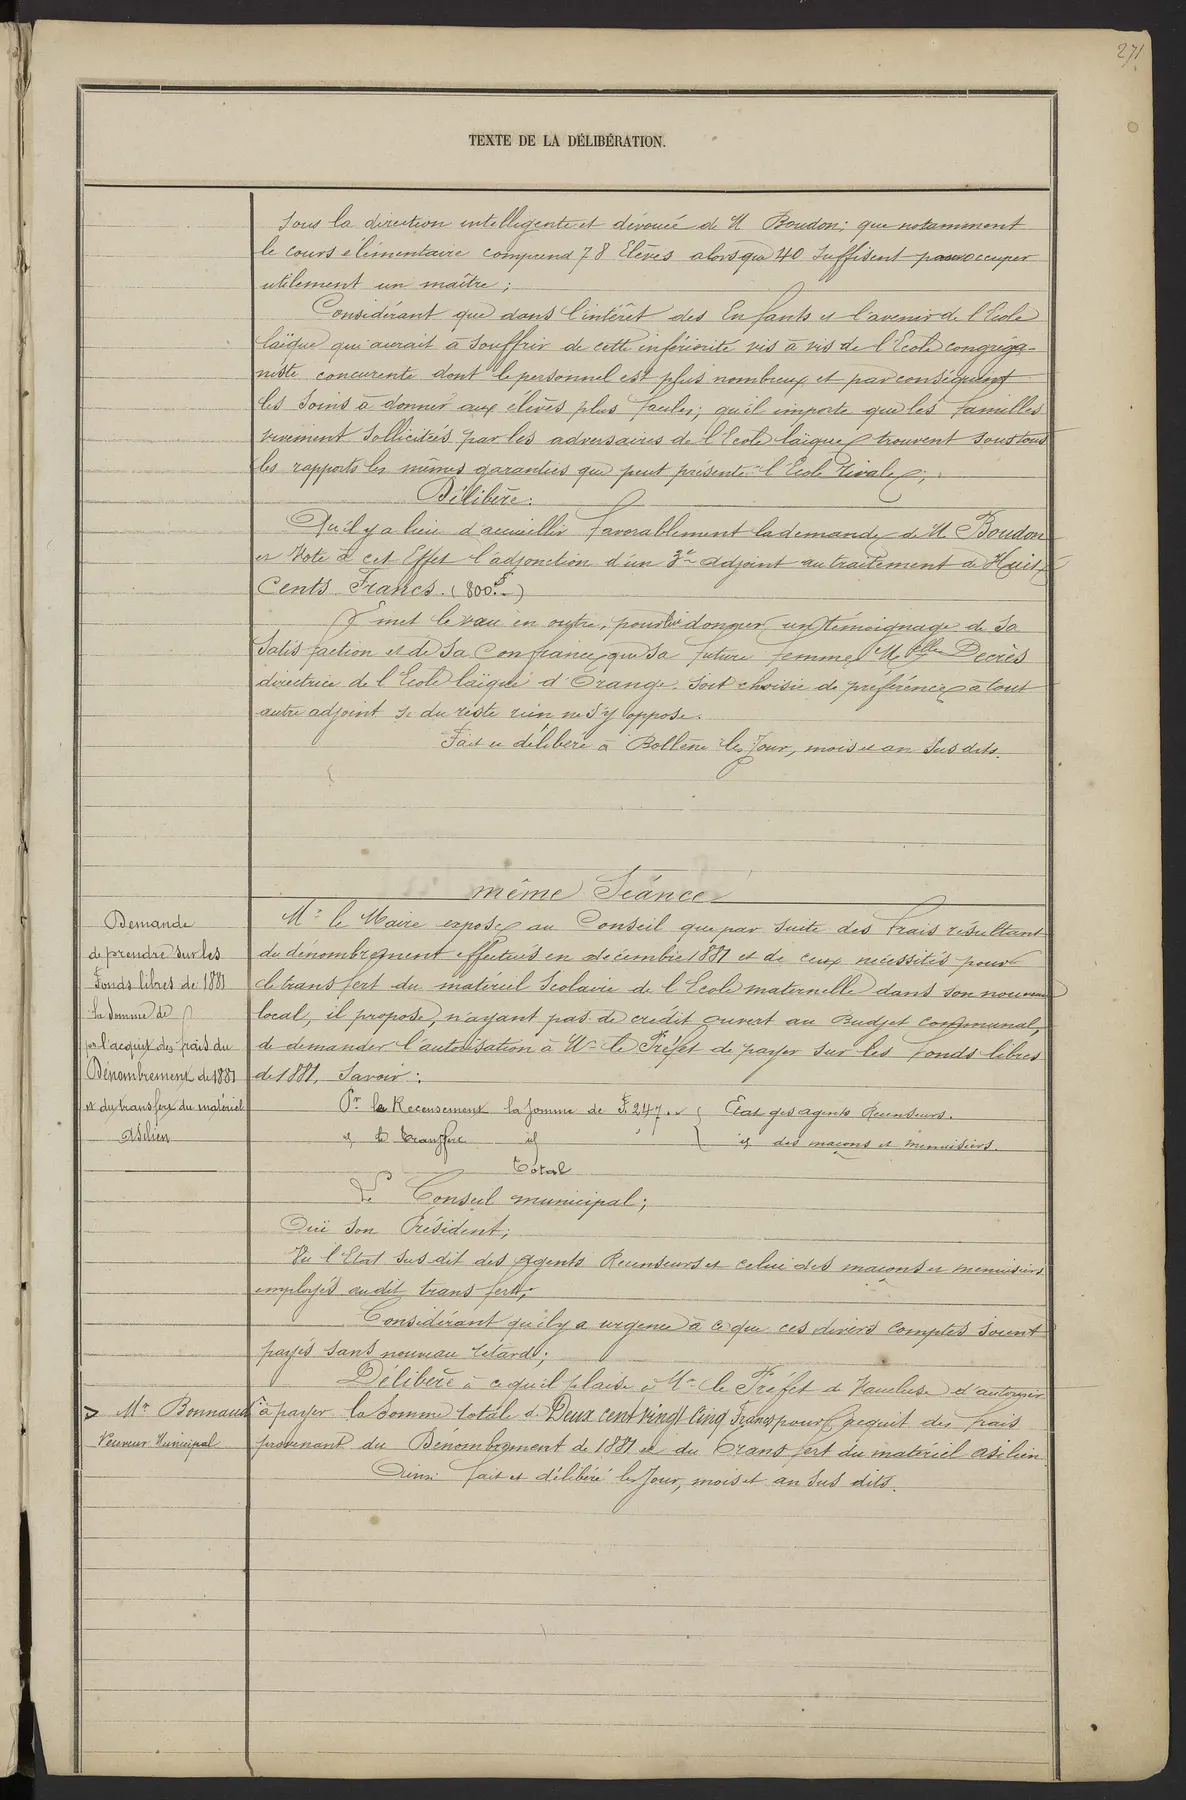 271
TEXTE DE LA DÉLIBÉRATION.
sous la direction intelligente et dévouée de M Boudon; que notamment
le cours élémentaire comprend 78 Elèves alors que 40 suffisent pour occuper
utilement un maître;
Considérant que dans l'intérêt des Enfants et l'avenir de l'Ecole
laïque qui aurait à souffrir de cette infériorité vis à vis de l'Ecole congréga-
niste concurente dont le personnel est plus nombreux et par conséquent
les soins à donner aux élèves plus faciles; qu'il importe que les familles
vivement sollicités par les adversaires de l'Ecole laïque, trouvent sous tous
les rapports les mêmes garanties que peut présenter l'Ecole rivale;
Délibère:
Qu'il y a lieu d'accueillir favorablement la demande de M Boudon
et Vote à cet Effet l'adjonction d'un 3e adjoint au traitement de Huit
Cents Francs. (800f.–)
Emet le vœu en outre, pour lui donner un témoignage de sa
satisfaction et de sa Confiance, que sa future femme Melle Decrès
directrice de l'Ecole laïque d'Orange. soit choisie de préférence à tout
autre adjoint si du reste rien ne s'y oppose.
Fait et délibéré à Bollène les Jour, mois et an susdits.
même Séance
Demande
de prendre sur les
Fonds libres de 1881
la somme de
pr l'acquit des frais du
Dénombrement de 1881
et du transfert du matériel
asilien
Mr le Maire expose au Conseil que par suite des frais résultant
du dénombrement effectués en décembre 1881 et de ceux nécessités pour
le transfert du matériel scolaire de l'Ecole maternelle dans son nouveau
local, il propose, n'ayant pas de crédit ouvert au Budget communal,
de demander l'autorisation à Mr le Préfet de payer sur les Fonds libres
de 1881, Savoir:
Pr le Recensement la somme de F. 247. " { Etat des agents Recenseurs.
id le transfert id " { id des maçons et menuisiers.
Total
Le Conseil municipal;
Ouï son Président;
Vu l'Etat sus dit des agents Recenseurs et celui des maçons et menuisiers
employés audit transfert;
Considérant qu'il y a urgence à ce que ces divers comptes soient
payés sans nouveau retard;
Délibère à ce qu'il plaise à Mr le Préfet de Vaucluse d'autoriser
> Mr Bonnaud
Receveur Municipal
à payer la somme totale de Deux cent vingt Cinq Francs pour l'acquit des frais
provenant du Dénombrement de 1881 et du Transfert du matériel asilien
Ainsi fait et délibéré les Jour, mois et an sus dits.